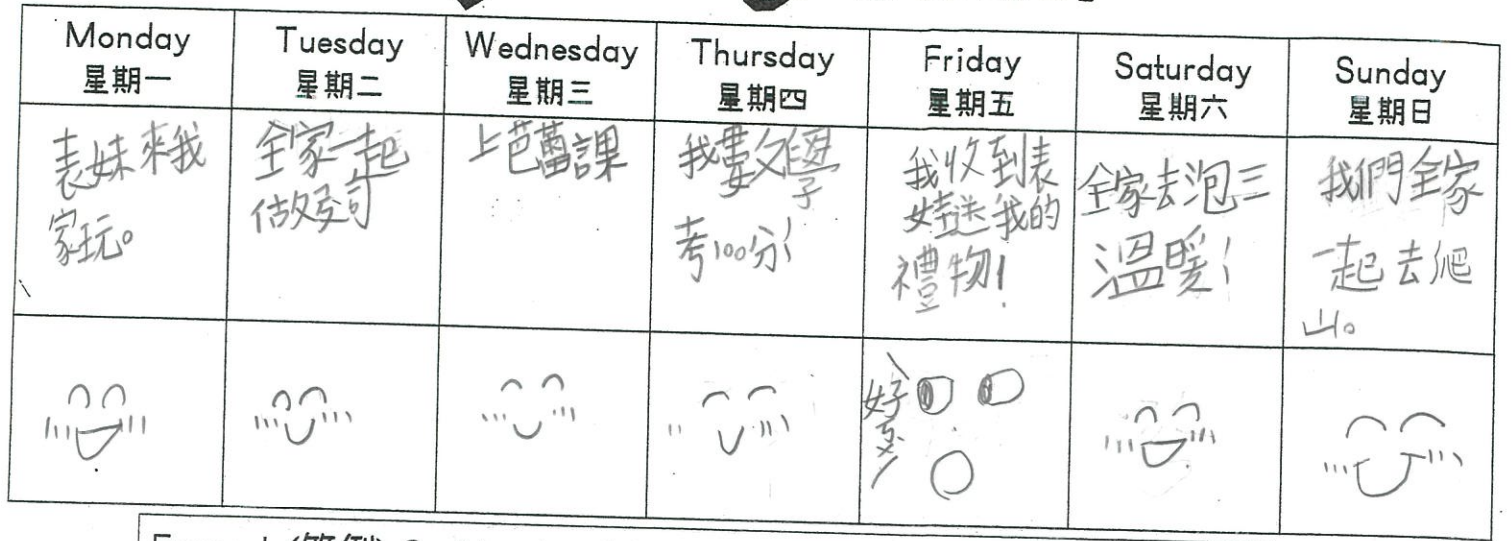 Monday
星期一
Tuesday
星期二
Wednesday
星期三
Thursday
星期四
Friday
星期五
Saturday
星期六
Sunday
星期日
表妹來我
家玩。
全家一起
做壽司
上芭蕾課
我數學
考100分!
我收到表
姊送我的
禮物!
全家去泡三
溫暖!
我們全家
一起去爬
山。
好多